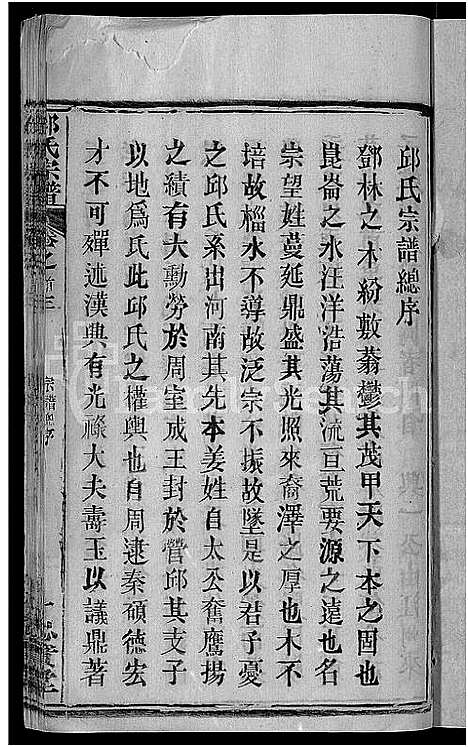 邱氏宗譜總序
鄧林之木紛敷蓊鬱其茂甲天下本之固也
崑崙之水汪洋浩蕩其流亘荒要源之遠也名
崇望姓蔓延鼎盛其光照來裔澤之厚也木不
培故椔水不導故泛宗不振故墜是以君子憂
之邱氏系出河南其先本姜姓自太公奮鷹揚
之績有大勳勞於周室成王封於營邱其支子
以地爲氏此邱氏之權輿也自周逮秦碩德宏
才不可殫述漢興有光祿大夫壽玉以議鼎著
邱氏宗譜
卷之首三
宗譜總序